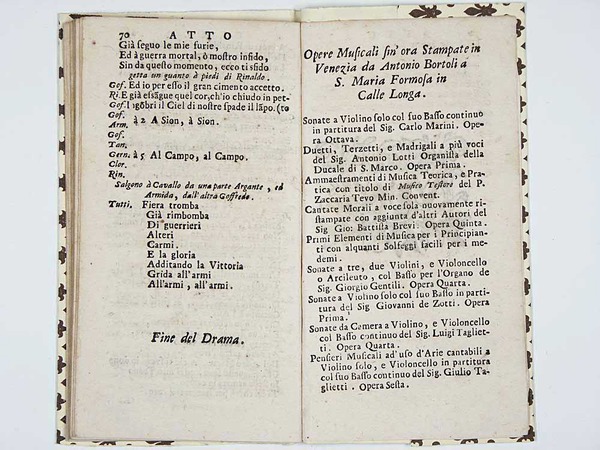 70 ATTO
Già seguo le mie furie,
Ed à guerra mortal, ò mostro infido,
Sin da questo momento, ecco ti sfido
getta un guanto à piedi di Rinaldo.
Gof. Ed io per esso il gran cimento accetto.
Ri. E già essãgue quel cor, ch'io chiudo in pet-
Gof. I 1600bri il Ciel di nostre spade il lãpo. (to
Gof.
Arm. à 2 A Sion, à Sion.
Gof.
Tan.
Gern. à 5 Al Campo, al Campo.
Clor.
Rin.
Salgono à Cavallo da una parte Argante, ed
Armida, dall'altra Goffredo.
Tutti. Fiera tromba
Già rimbomba
Di guerrieri
Alteri
Carmi.
E la gloria
Additando la Vittoria
Grida all'armi
All'armi, all'armi.
Fine del Drama.
Opere Musicali sin'ora Stampate in
Venezia da Antonio Bortoli a
S. Maria Formosa in
Calle Longa.
Sonate a Violino solo col suo Basso continuo
in partitura del Sig. Carlo Marini. Ope-
ra Ottava.
Duetti, Terzetti, e Madrigali a più voci
del Sig. Antonio Lotti Organista della
Ducale di S. Marco. Opera Prima.
Ammaestramenti di Musica Teorica, e Pra-
tica con titolo di Musico Testore del P.
Zaccaria Tevo Min. Convent.
Cantate Morali a voce sola nuovamente ri-
stampate con aggiunta d'altri Autori del
Sig. Gio: Battista Brevi. Opera Quinta.
Primi Elementi di Musica per i Principian-
ti con alquanti Solfeggi facili per i me-
demi.
Sonate a tre, due Violini, e Violoncello
o Arcileuto, col Basso per l'Organo de
Sig. Giorgio Gentili. Opera Quarta.
Sonate a Violino solo col suo Basso in parti-
tura del Sig. Giovanni de Zotti. Opera
Prima.
Sonate da Camera a Violino, e Violoncello
col Basso continuo del Sig. Luigi Tagliet-
ti. Opera Quarta.
Pensieri Musicali ad'uso d'Arie cantabili a
Violino solo, e Violoncello in partitura
col suo Basso continuo del Sig. Giulio Ta-
glietti. Opera Sesta.